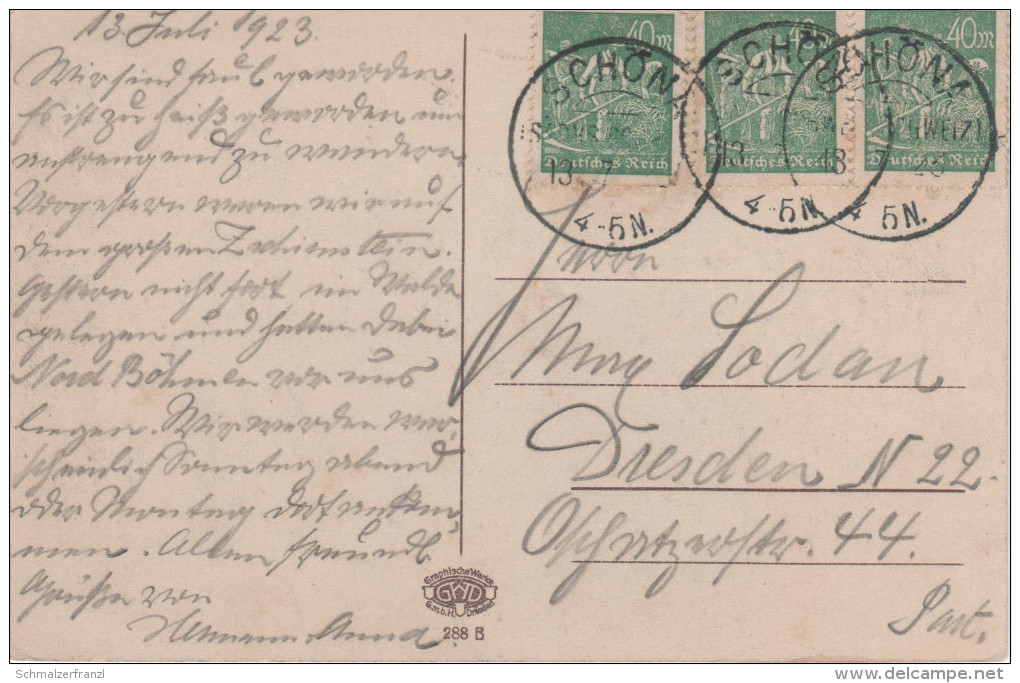 13. Juli 1923.
Wir sind faul geworden.
Es ist zu heiß geworden und
anstrengend zu wandern.
Vorgestern waren wir auf
dem großen Zschirnstein.
Gestern nicht fort im Walde
gelegen und hatten dabei
Nord Böhmen vor uns
liegen. Wir werden war-
scheinlich Sonntag abend
oder Montag dort ankom-
men. Allen freundl.
Grüße von
Hermann Anna.
40 M
40 M
40 M
Deutsches Reich
Deutsches Reich
Deutsches Reich
SCHÖNA
13 7
4-5 N.
SCHÖNA
13
4-5 N.
SCHÖNA
SCHWEIZ
13 7 23
4-5 N.
Max Sodan
Dresden N 22.
Oschatzerstr. 44.
Part.
Graphische Werke
GWD
G.m.b.H. Dresden
288 B
Schmalzerfranzl
www.delcampe.net